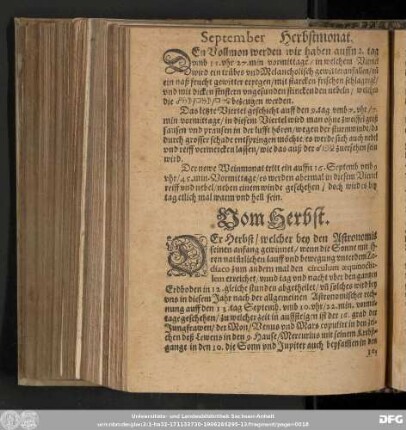 September Herbstmonat.
DEn Vollmon werden wir haben auffn 2. tag
vmb 11. vhr 27. min vormittage / in welchem Viertel
wind ein trübes vnd Melancholisch gewitter einfallen /
ein naß frucht gewitter erregen / mit starcken frischen
vnd mit dicken finstern vngesunden stincken den nebeln / welches
die bezeugen werden.
Das letzte Viertel geschicht auff den 9. tag vmb 7. vhr / 7.
min vormittage / in diesem Viertel wird man ohne zweiffel groß
sausen vnd prausen in der lufft hören / wegen der sturmwinde / da
durch grosser schade entspringen möchte / es werde sich auch nebel
vnd reiff vermercken lassen / wie das auß der zuersehen sein
wird.
Der newe Weinmonat tritt ein auffn 16. Septemb. vmb 9
vhr / 41. min. Vormittage / es werden abermal in diesem Viertel
reiff vnd nebel / neben einem winde geschehen / doch wird es bey
tag etlich mal warm vnd hell sein.
Vom Herbst.
DEr Herbst / welcher bey den Astronomis
seinen anfang gewinnet / wenn die Sonne mit jh-
ren natürlichen lauff vnd bewegung vnter dem Zo-
diaco zum andern mal den circulum æquinoctia-
lem erreichet / wird tag vnd nacht vber den gantzen
Erdboden in 12. gleiche stunden abgetheilet / vñ solches wird bey
vns in diesem Jahr nach der allgemeinen Astronomischer rech-
nung auff den 13. tag Septemb. vmb 10. vhr / 22. min. vormit-
tage geschehen / zu welcher zeit in auffsteigen ist der 16. grad der
Jungfrawen / der Mon / Venus vnd Mars copulirt in den zei-
chen deß Lewens in den 9. Hause / Mercurius mit seinem Krebs-
gange in den 10. die Sonn vnd Jupiter auch beysammen in den
Universitäts- und Landesbibliothek Sachsen-Anhalt
urn:nbn:de:gbv:3:1-fra32-171133730-1998289290-13/fragment/page=0018
DFG